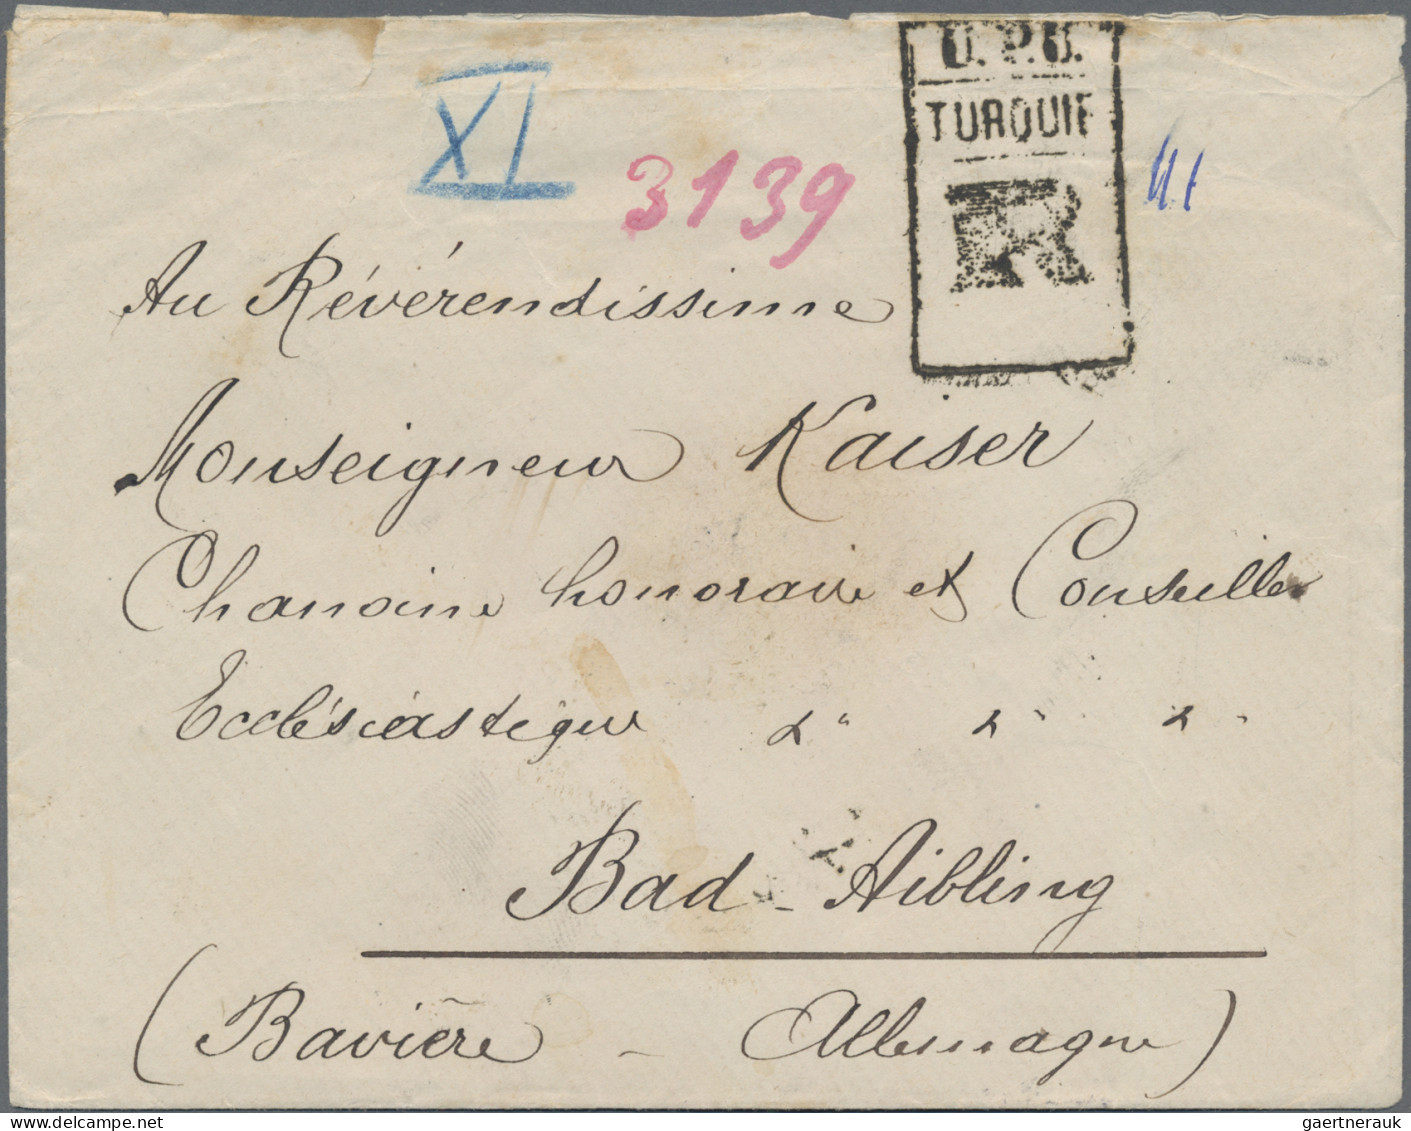 U.P.U.
TURQUIE
R
XI
3139
Au Révérendissime
Monseigneur Kaiser
Chanoine honoraire et Conseiller
Ecclésiastique
Bad-Aibling
(Bavière - Allemagne)
gaertnerauk
delcampe.net